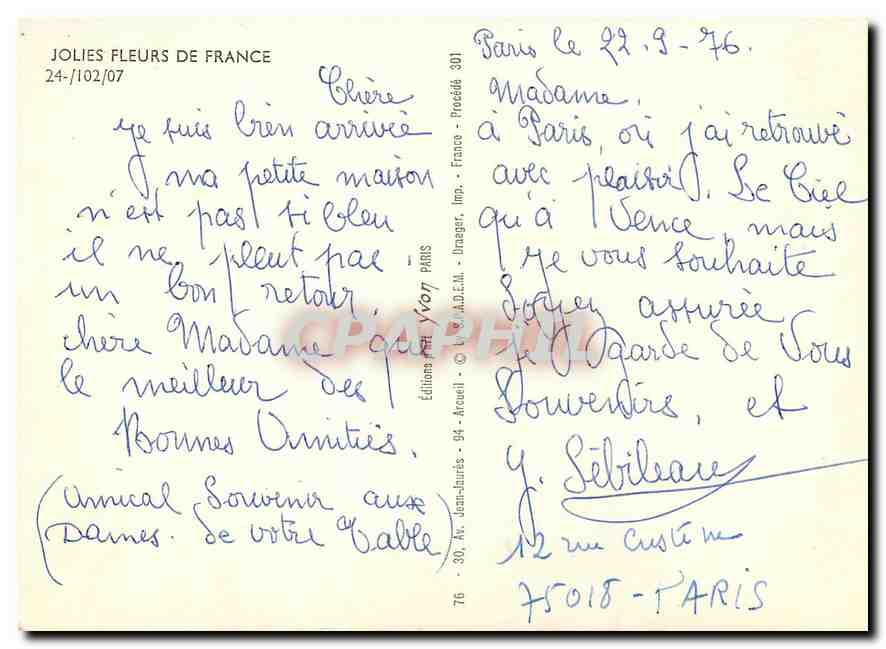 JOLIES FLEURS DE FRANCE
24-/102/07
Paris le 22.9-76.
Chère Madame,
je suis bien arrivée à Paris, où j'ai retrouvé
ma petite maison avec plaisir. Le Ciel
n'est pas si bleu qu'à Vence, mais
il ne pleut pas. Je vous souhaite
un bon retour, Soyez assurée
chère Madame que je garde de Vous
le meilleur des Souvenirs, et
Bonnes Amitiés.
Y. Sébileau
12 rue Custine
75018-PARIS
(Amical Souvenir aux
Dames de votre Table)
Editions d'art Yvon PARIS
76 - 30, Av. Jean-Jaurès - 94 - Arcueil - © by S.P.A.D.E.M. - Draeger, Imp. - France - Procédé 301
CPAPHIL